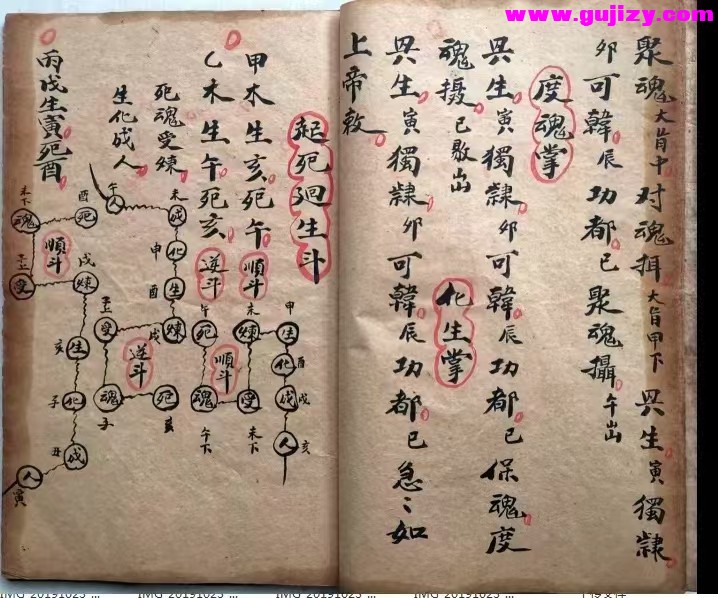 www.gujizy.com
聚魂大指中对魂揖大指甲下與生寅獨隸
卯可韓辰功都巳聚魂攝午出
度魂掌
與生寅獨隸卯可韓辰功都巳保魂度
魂摄巳出
化生掌
與生寅獨隸卯可韓辰功都巳急〻如
上帝敕
起死廻生斗
甲木生亥死午順斗
乙木生午死亥逆斗
死魂受煉
生化成人
丙戊生寅死酉
午死
午下魂
未下受
未煉
甲生
酉化
戌成
亥人
順斗
亥死
子魂
子上受
戌煉
酉生
申化
未成
午人
逆斗
酉死
未下魂
受
戌煉
亥生
子化
丑成
寅人
順斗
IMG_20191023_...
IMG_20191023_...
IMG_20191023_...
IMG_20191023_...